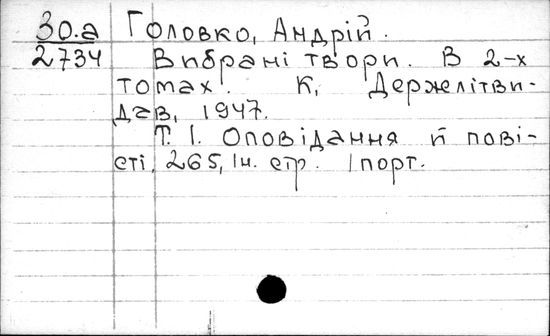 30.а Головко, Андрій.
2734 Вибрані твори. В 2-х
томах. К, Держлітви-
дав, 1947.
Т. 1. Оповідання й пові-
сті, 265, 1н. стр. 1 порт.